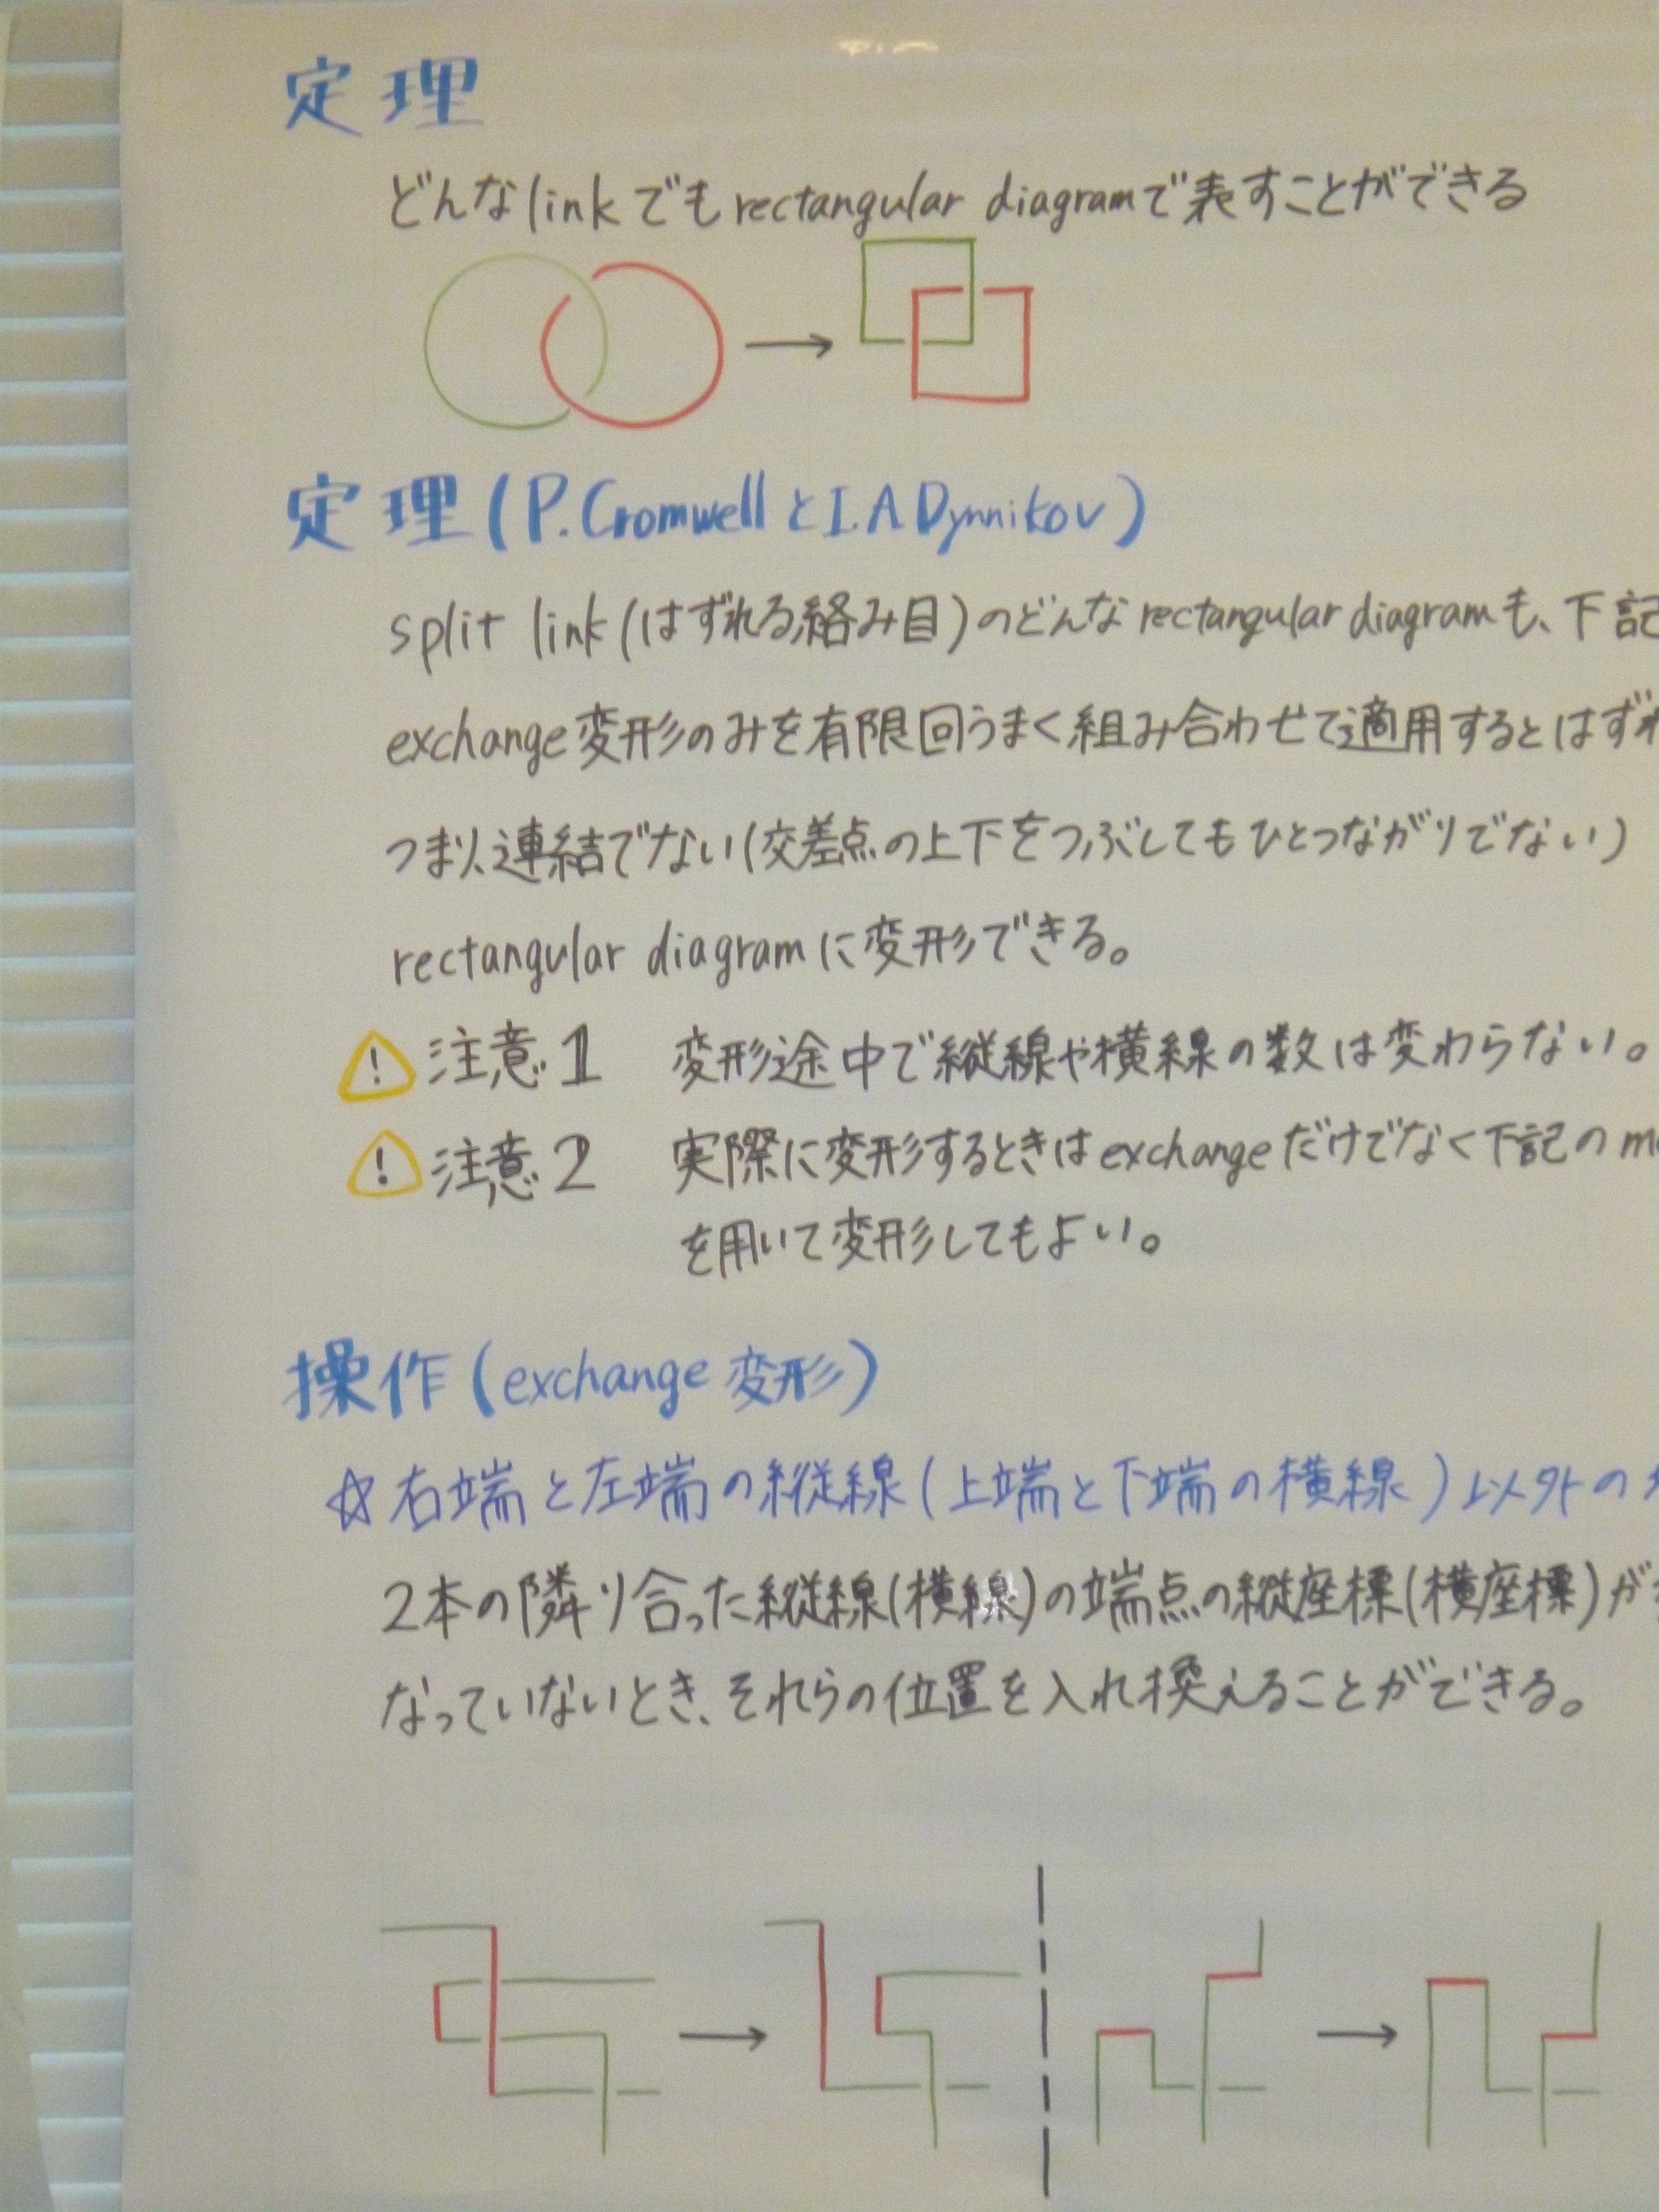 定理
どんなlinkでもrectangular diagramで表すことができる
定理(P.CromwellとI.A.Dynnikov)
split link(はずれる絡み目)のどんなrectangular diagramも、下記
exchange変形のみを有限回うまく組み合わせて適用するとはずれ
つまり、連結でない(交差点の上下をつぶしてもひとつながりでない)
rectangular diagramに変形できる。
! 注意1 変形途中で縦線や横線の数は変わらない。
! 注意2 実際に変形するときはexchangeだけでなく下記の
を用いて変形してもよい。
操作(exchange変形)
☆右端と左端の縦線(上端と下端の横線)以外の
2本の隣り合った縦線(横線)の端点の縦座標(横座標)が
なっていないとき、それらの位置を入れ換えることができる。